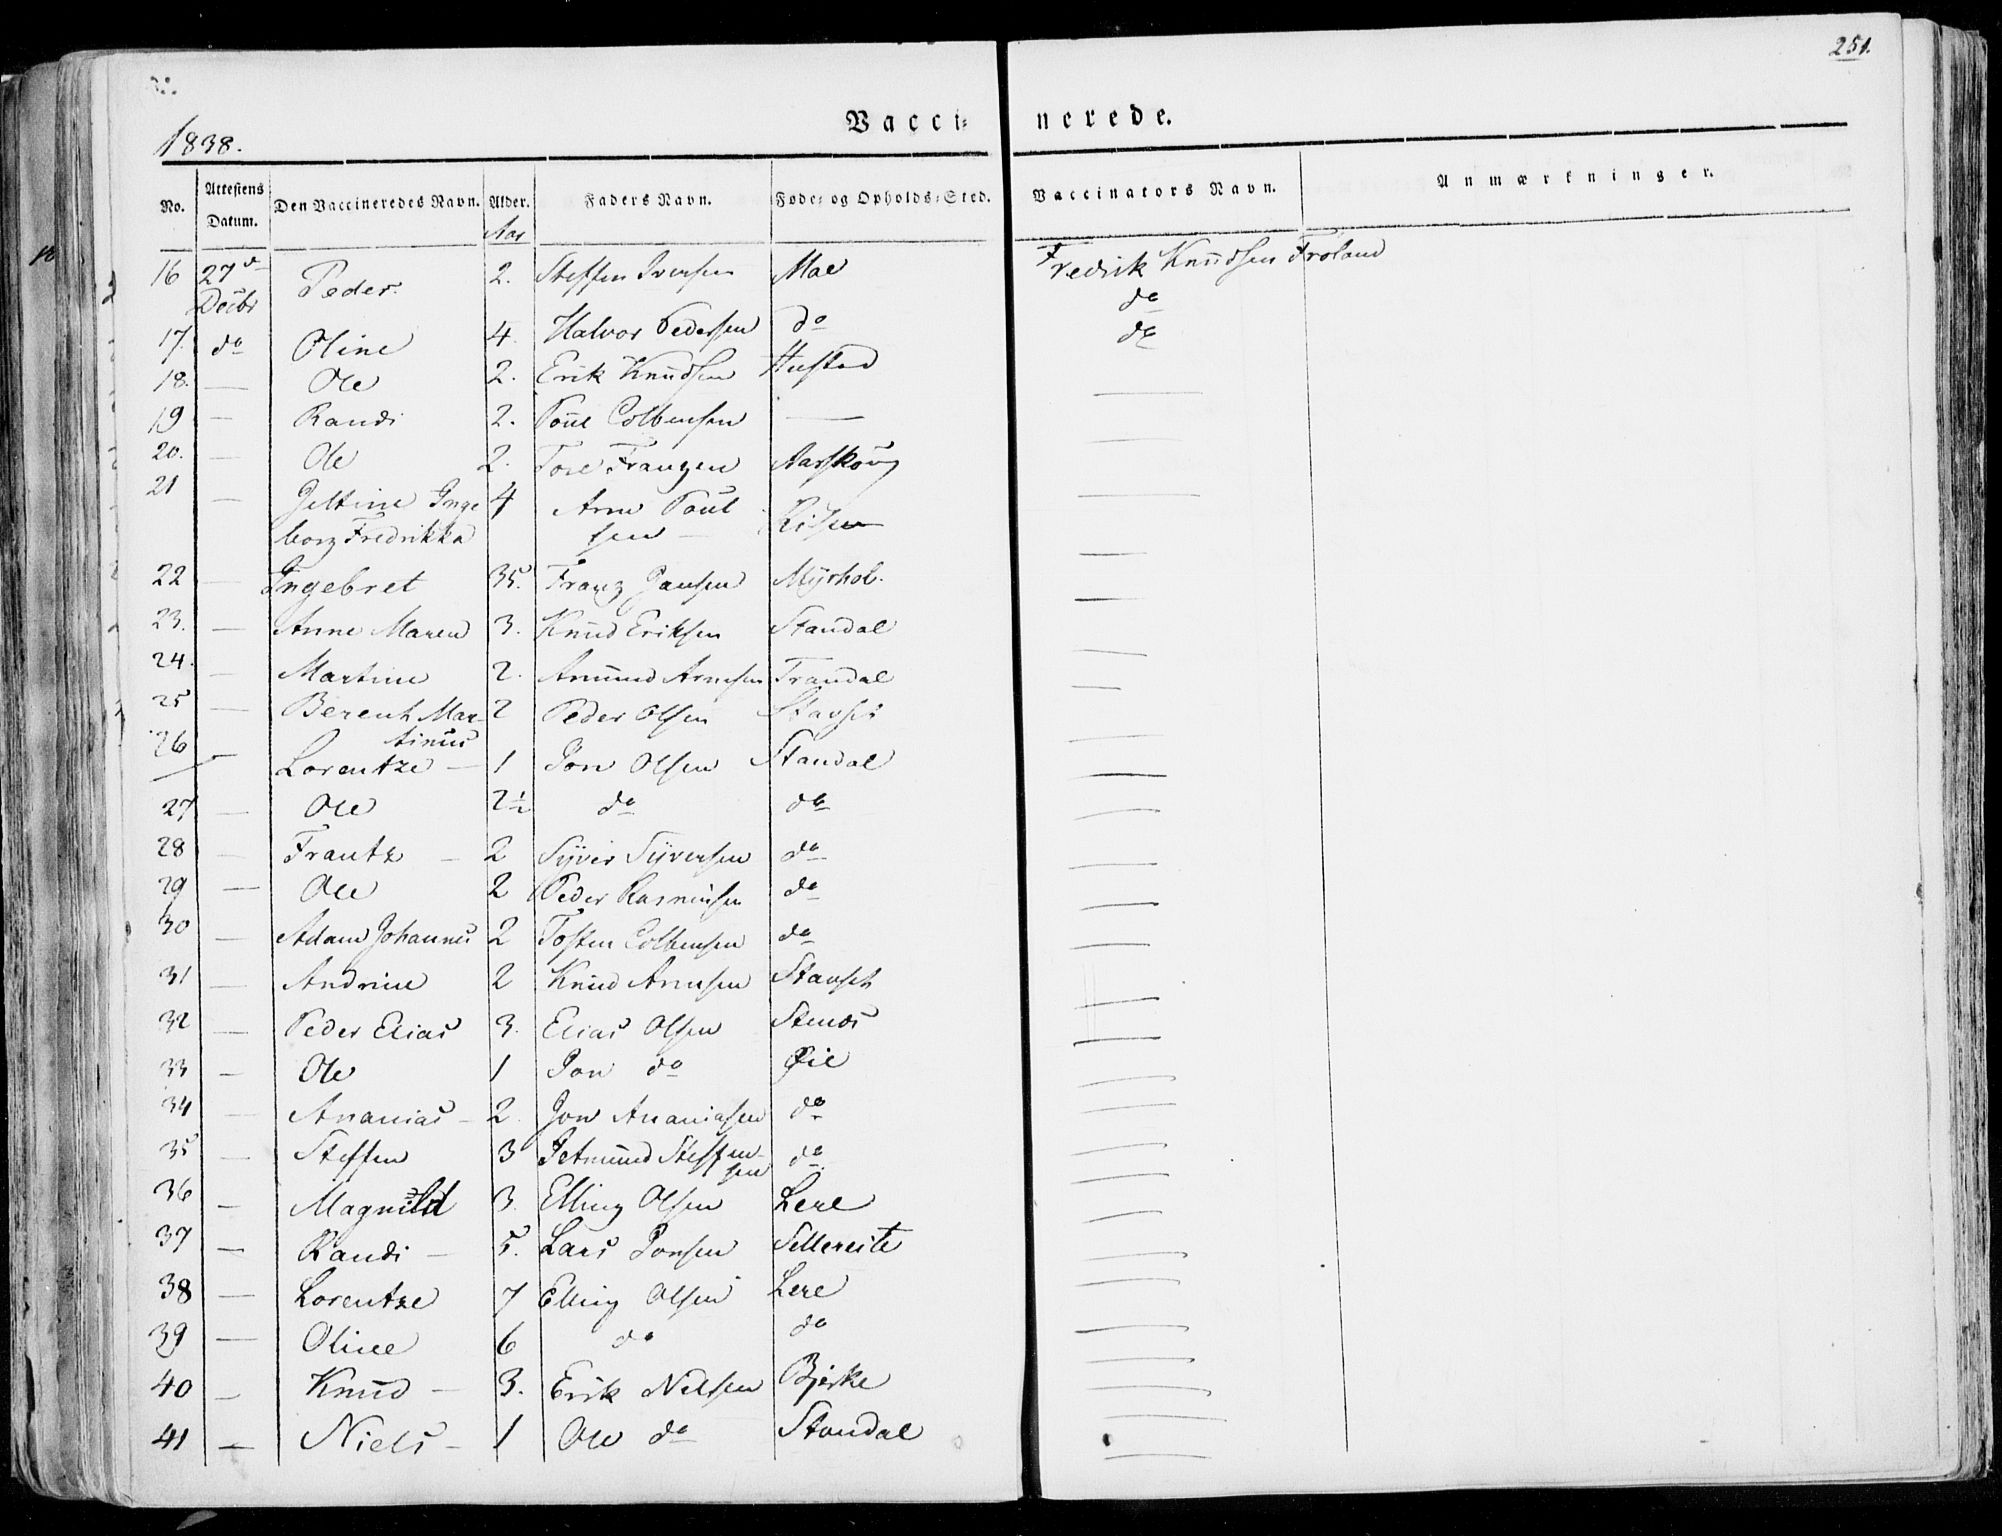 251.
Vaccinerede.
1838.
No. Attestens Datum. Den Vaccineredes Navn. Alder. Faders Navn. Føde- og Opholds-Sted. Vaccinators Navn. Anmærkninger.
Aar
16 27de Decbr Peder. 2. Steffen Iversen Mae Fredrik Knudsen Froland
do
17. do Oline 4. Halvor Pedersen do do
18. — Ole 2. Erik Knudsen Hustad —
19 — Randi 2. Poul Colbensen — —
20. — Ole 2. Tore Franzen Aarskoug —
21 — Jeltine Inge 4 Arne Poul Risen —
borg Fredrikka sen —
22 — Ingebret 35. Franz Jansen Myrhol. —
23. — Anne Maren 3. Knud Eriksen Standal —
24. — Martine 2. Amund Arnesen Trandal —
25 — Berent Mar- 2 Peder Olsen Stavset —
tinus
26 — Lorentze — 1 Jon Olsen Standal —
27 — Ole 2½ do do —
28 — Frantz — 2 Syver Syversen do —
29 — Ole 2 Peder Rasmusen do —
30 — Adam Johannes 2 Tosten Colbensen do —
31 — Andrine 2 Knud Arnesen Stavset —
32 — Peder Elias 3. Elias Olsen Stenes —
33 — Ole 1 Jon do Øie —
34 — Ananias — 2. Jon Ananiasen do —
35 — Steffen 3 Jetmund Steffen- do —
sen
36 — Magnild 3. Elling Olsen Lere —
37 — Randi — 5. Lars Jonsen Sellereite —
38 — Lorentze 7 Elling Olsen Lere —
39 — Oline 6 do do —
40 — Knud — 3. Erik Nilsen Bjerke —
41 — Niels — 1 Ole do Standal —